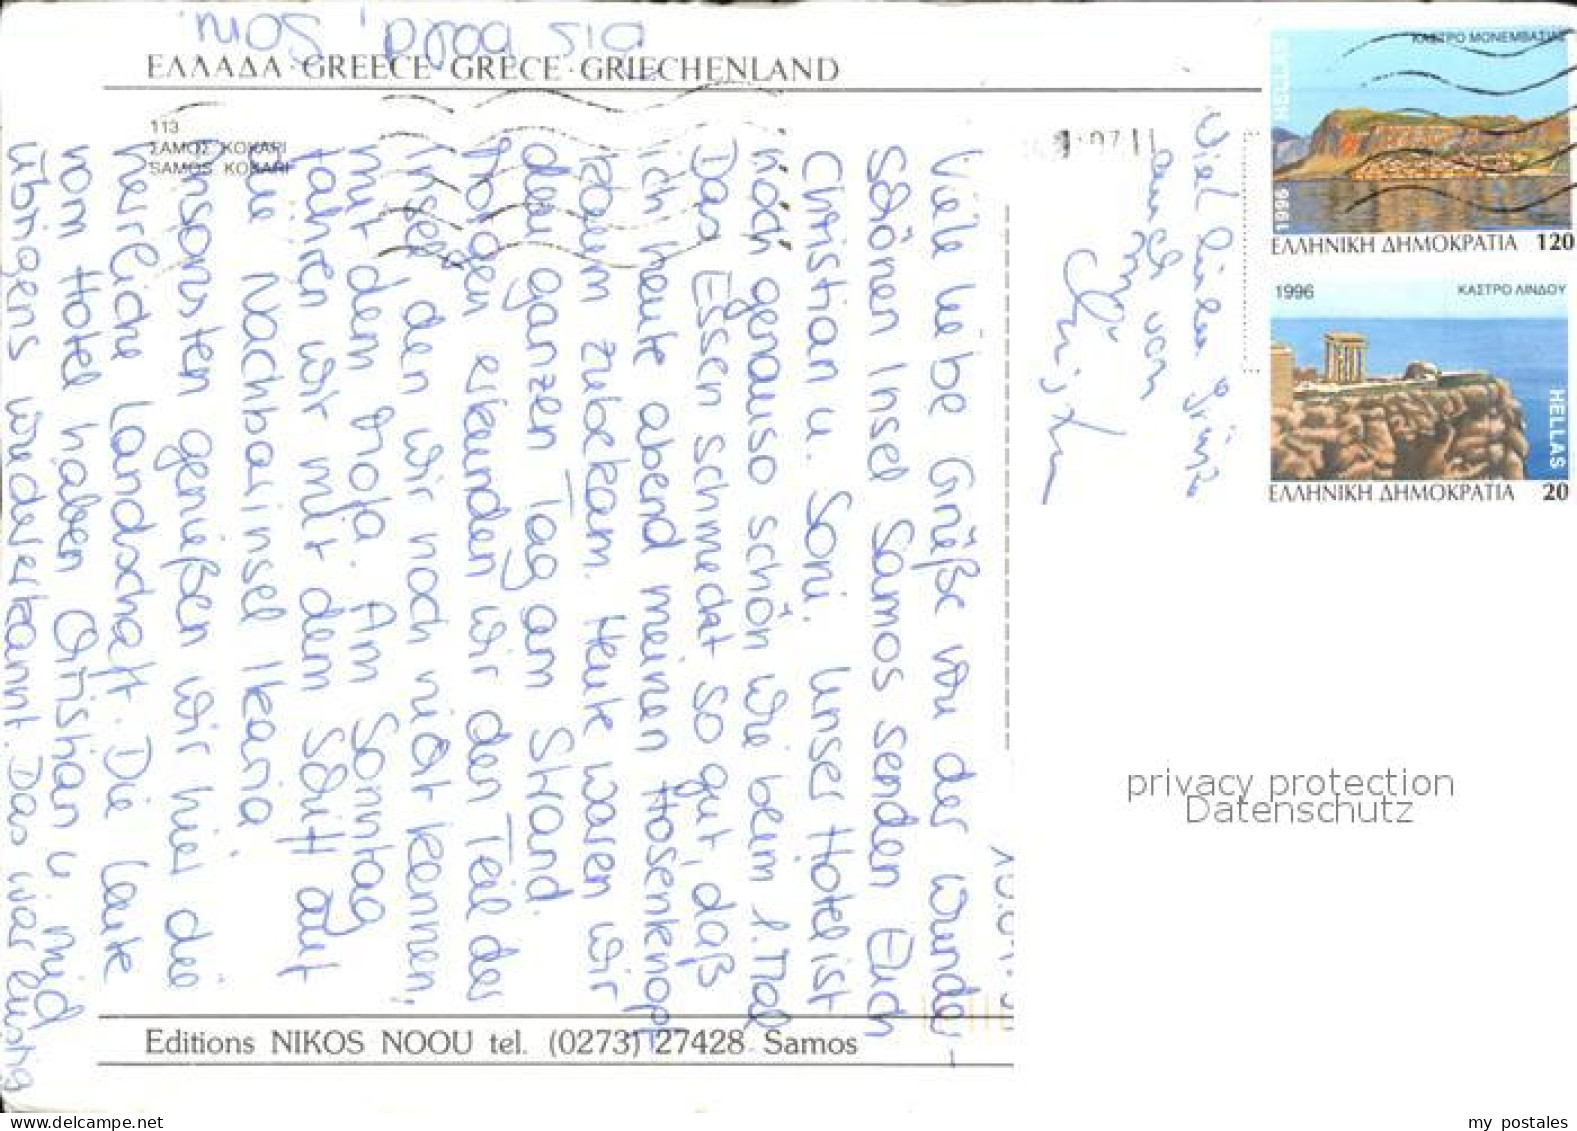 ΕΛΛΑΔΑ · GREECE · GRECE · GRIECHENLAND
113
ΣΑΜΟΣ ΚΟΚΑΡΙ
SAMOS KOKARI
Viele liebe Grüße von der wunder-
schönen Insel Samos senden Euch
Christian u. Soni. Unser Hotel ist
noch genauso schön wie beim 1. Mal
Das Essen schmeckt so gut, daß
ich heute abend meinen Hosenknopf
kaum zubekam. Heute waren wir
den ganzen Tag am Strand.
Morgen erkunden wir den Teil der
Insel, den wir noch nicht kennen,
mit dem Mofa. Am Sonntag
fahren wir mit dem Schiff auf
die Nachbarinsel Ikaria
Ansonsten genießen wir hier die
herrliche Landschaft. Die Leute
vom Hotel haben Christian u. mich
übrigens wiedererkannt. Das war lustig
Bis bald, Soni
Viel liebe Grüße
auch von
mir
Christian
ΚΑΣΤΡΟ ΜΟΝΕΜΒΑΣΙΑΣ
HELLAS
1996
ΕΛΛΗΝΙΚΗ ΔΗΜΟΚΡΑΤΙΑ 120
1996
ΚΑΣΤΡΟ ΛΙΝΔΟΥ
HELLAS
ΕΛΛΗΝΙΚΗ ΔΗΜΟΚΡΑΤΙΑ 20
privacy protection
Datenschutz
Editions NIKOS NOOU tel. (0273) 27428 Samos
my postales